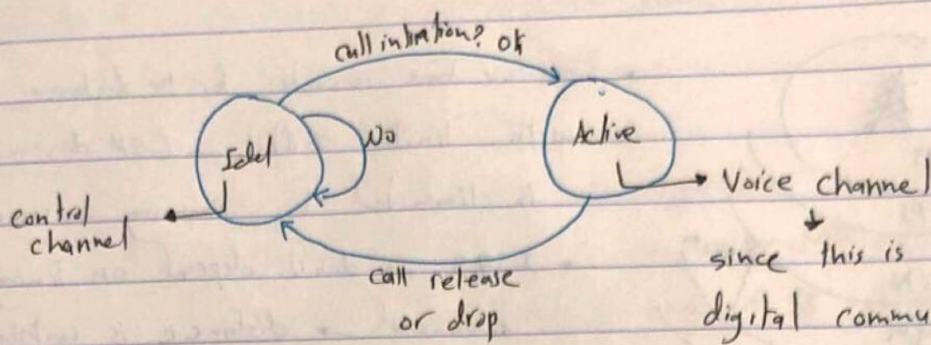 call intiation? ok
Idel
No
Active
control
channel
Voice channel
since this is
digital commu
call release
or drop